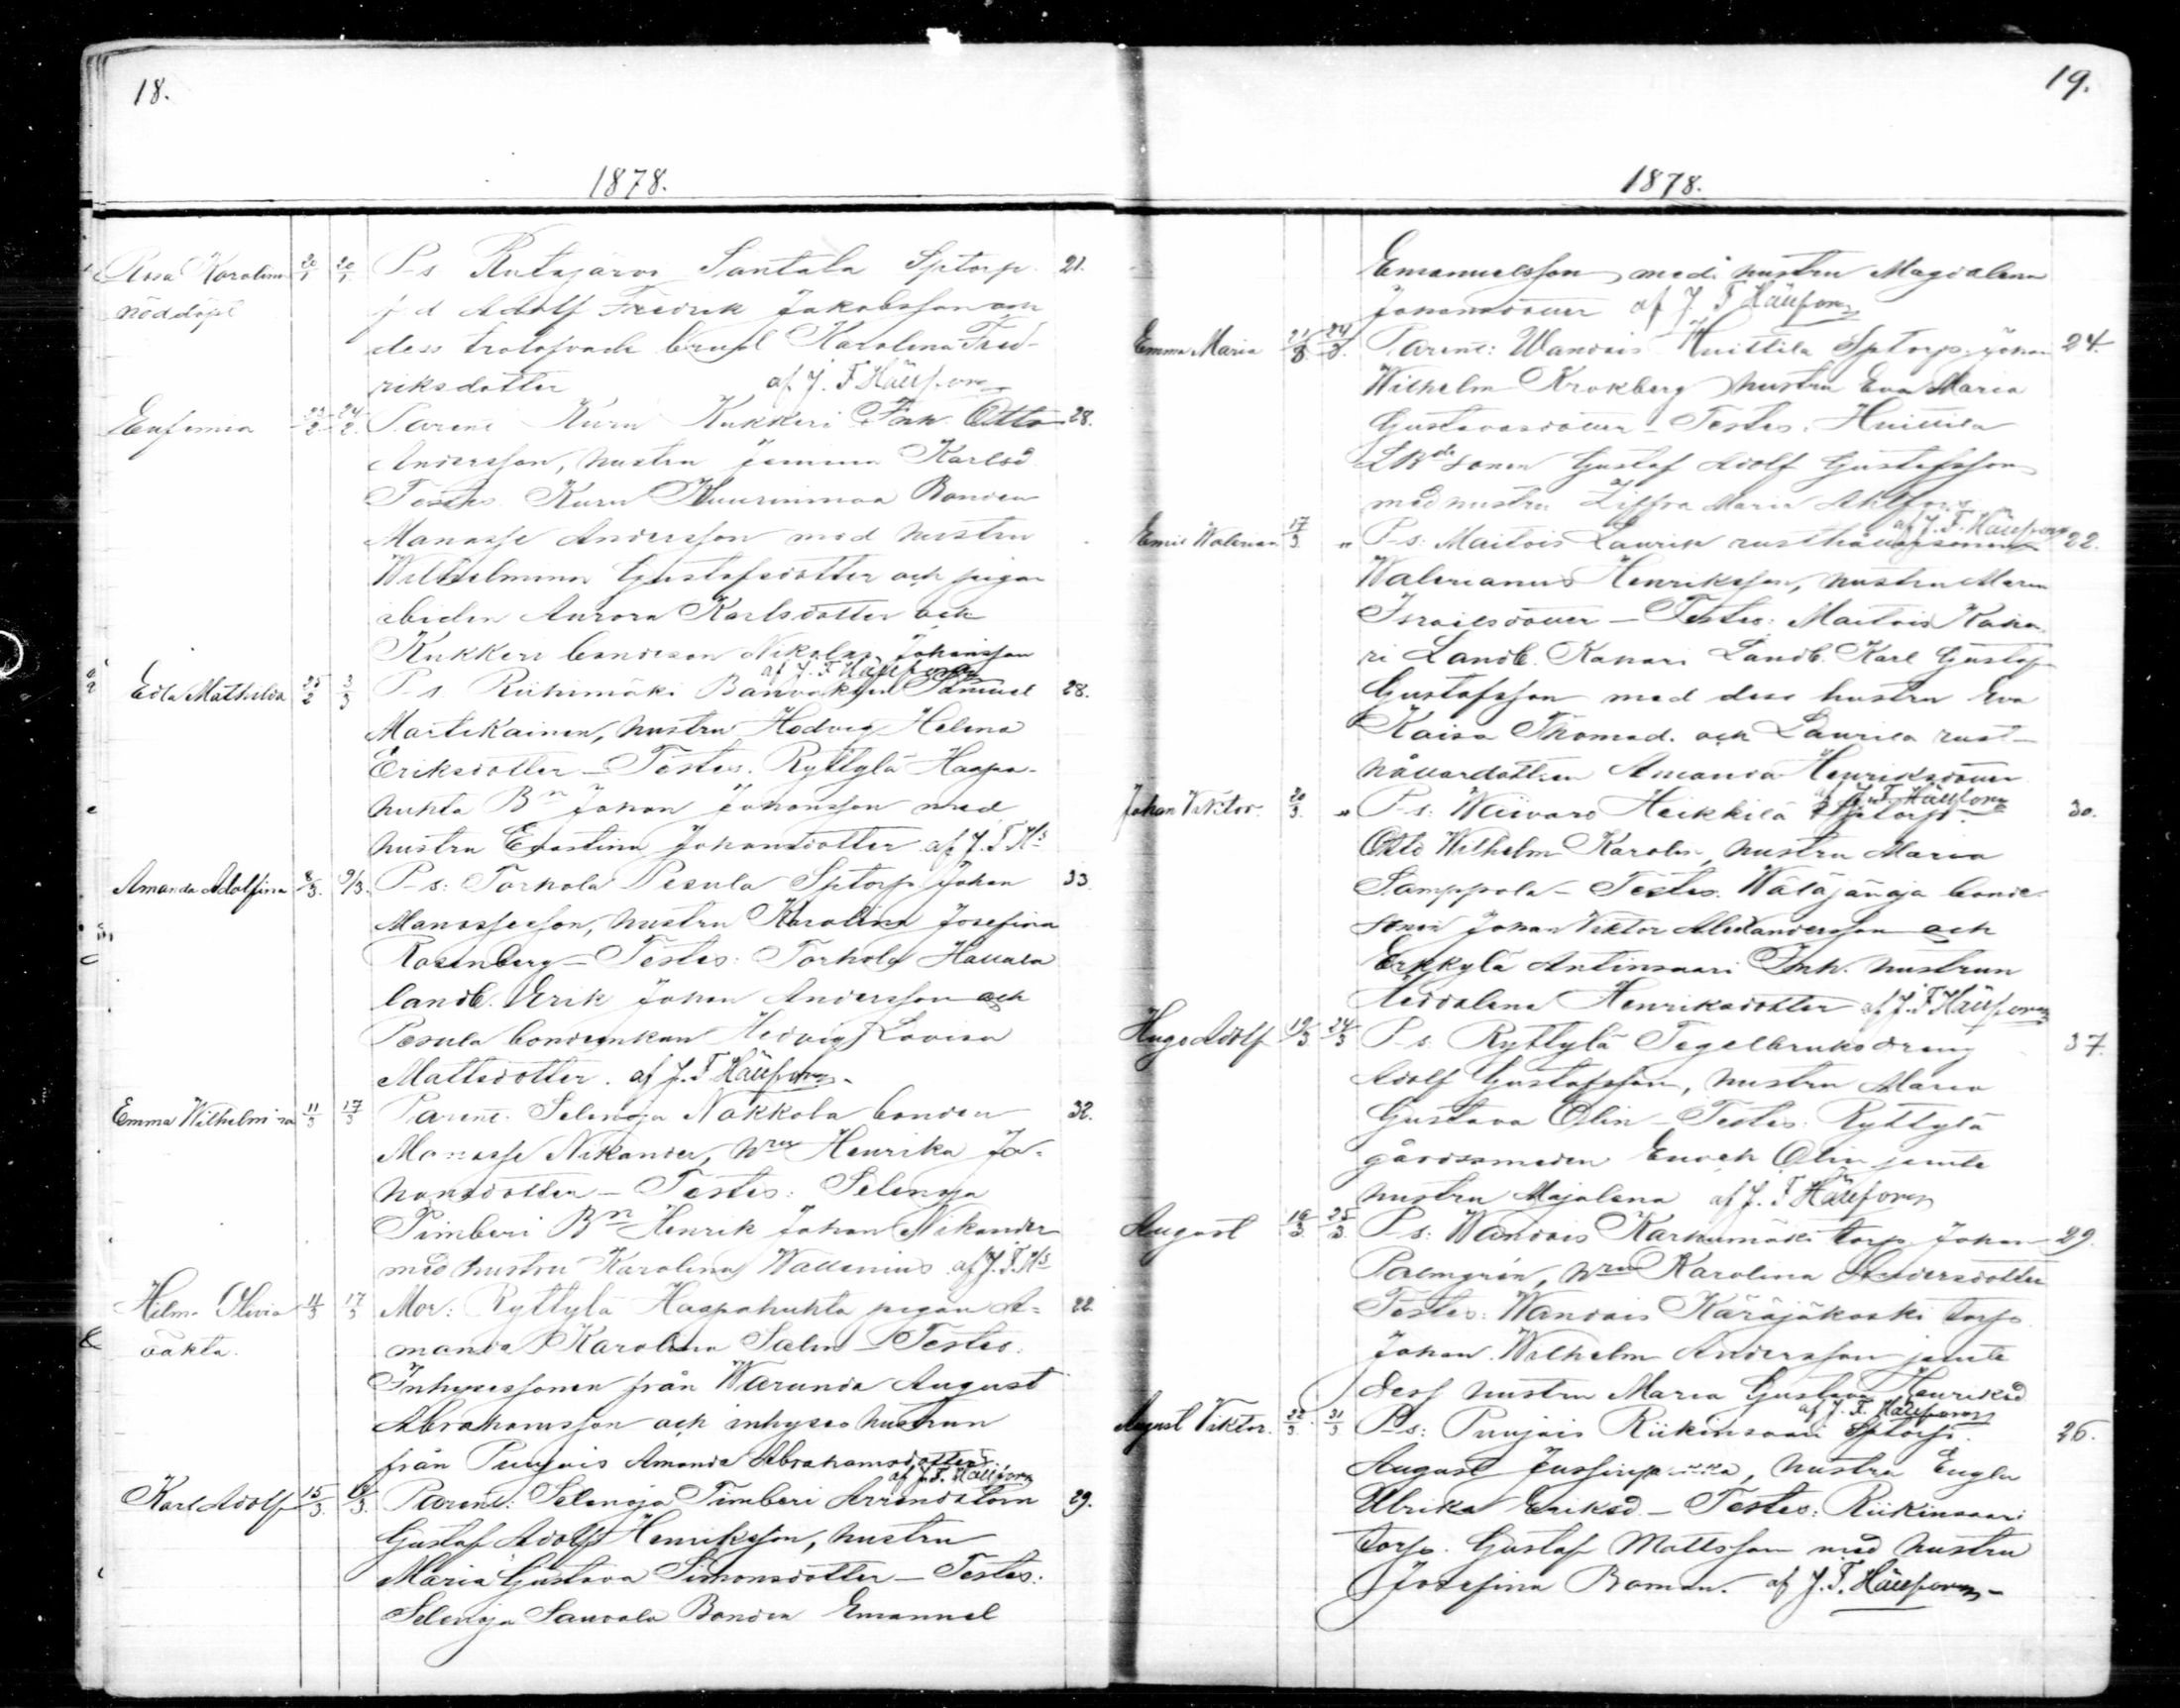 18.
1878.
Rosa Karolina 20/1 20/1 P-s Rutajärvi Santala Sptorp. 21.
nöddöpt j d Adolf Fredrik Jakobsson och
dess trolofvade brud Karolina Fred-
riksdotter af J. F Hällfors
Eufemia 23/2 24/2 Parent Kuru Kukkeri Inh Otto 28.
Andersson, hustru Karlsd
Testes Kuru Bonden
Manasse Andersson med hustru
Wilhelmina Gustafsdotter och pigan
Aurora Karlsdotter och
Kukkeri bondeson Nikolai Johansson
af J. F Hällfors
Edla Mathilda 25/2 3/3 P-s Riihimäki Banvakten Samuel 28.
Martikainen, hustru Hedvig Helena
Eriksdotter – Testes. Ryttylä Haapa-
huhta Bn Johan Johansson med
hustru Ernstina Johansdotter af J. F Hs
Amanda Adolfina 8/3. 9/3. P-s: Torhola Pesula Sptorp. Johan 33.
Manasseson, hustru Karolina Josefina
Rosenberg – Testes: Torhola Hallala
landb. Erik Johan Andersson och
Pesula bondenkan Hedvig Lovisa
Mattsdotter. af J. F Hällfors
Emma Wilhelmina 11/3 17/3 Parent. Selenoja Nokkola bonden 32.
Manasse Nikander, hru Henrika Jo-
hansdotter – Testes: Selenoja
Pimberi Bn Henrik Johan Nikander
med hustru Karolina Wallenius af J. F. Hs
Helma Olivia 11/3 17/3 Mor: Ryttylä Haapahuhta pigan A= 22.
oäkta. manda Karolina Salin – Testes.
Inhysessonen från Warunda August
Abrahamsson och inhyses hustrun
från Puujais Amanda Abrahamsdotter.
af J. F. Hällfors
Karl Adolf 15/3. 18/3. Parent: Selenoja Timberi Arrendatorn 29.
Gustaf Adolf Henriksson, hustru
Maria Gustava Simonsdotter – Testes:
Selenoja Sauvala Bonden Emanuel
19.
1878.
Emanuelsson med hustru Magdalena
Johansdotter af J. F Hällfors
Emma Maria 21/3 24/3. Parent: Wandois Huittila Sptorp. Johan 24.
Wilhelm Krokberg hustru Eva Maria
Gustavasdotter – Testes. Huittila
Sonen Gustaf Adolf Gustafsson
med hustru Maria Ahlfors
af J. F. Hällfors
Emil Walerian 17/3 " P-s: Maitois Laurila rusthållarsonen 22.
Walerianus Henriksson, hustru Maria
Israelsdotter – Testes: Maitois Kaha-
ri Landb. Kahari Landb. Karl Gustaf
Gustafsson med dess hustru Eva
Kaisa Thomasd. och Laurila rust-
hållardottren Amanda Henriksdotter
af J. F. Hällfors
Johan Viktor. 20/3. " P-s: Heikkilä Sptorp. 30.
Otto Wilhelm Karolin, hustru Maria
Samppola – Testes. Wäläjänoja bonde-
sonen Johan Viktor Alexandersson och
Erkkylä Antinsaari Inh. hustrun
Heddalena Henriksdotter af J. F Hällfors
Hugo Adolf 19/3 24/3 P-s. Ryttylä Tegelbruksdräng 37.
Adolf Gustafsson, hustru Maria
Gustava Olin – Testes. Ryttylä
gårdssmeden Enoch Olin jemte
hustru Majalena af J. F Hällfors
August 19/3 25/3. P-s: Wandois Karhumäki torp. Johan 29.
Palmgrén, hru Karolina Andersdotter
Testes: Wandois Käräjäkoski torp.
Johan Wilhelm Andersson jemte
dess hustru Maria Gustava Henriksd
af J. F. Hällfors
August Viktor. 22/3. 31/3 P-s: Puujais Riikinsaari Sptorp. 26.
August, hustru Eugla
Ulrika Eriksd. – Testes: Riikinsaari
torp. Gustaf Mattsson med hustru
Josefina Boman. af J. F. Hällfors –